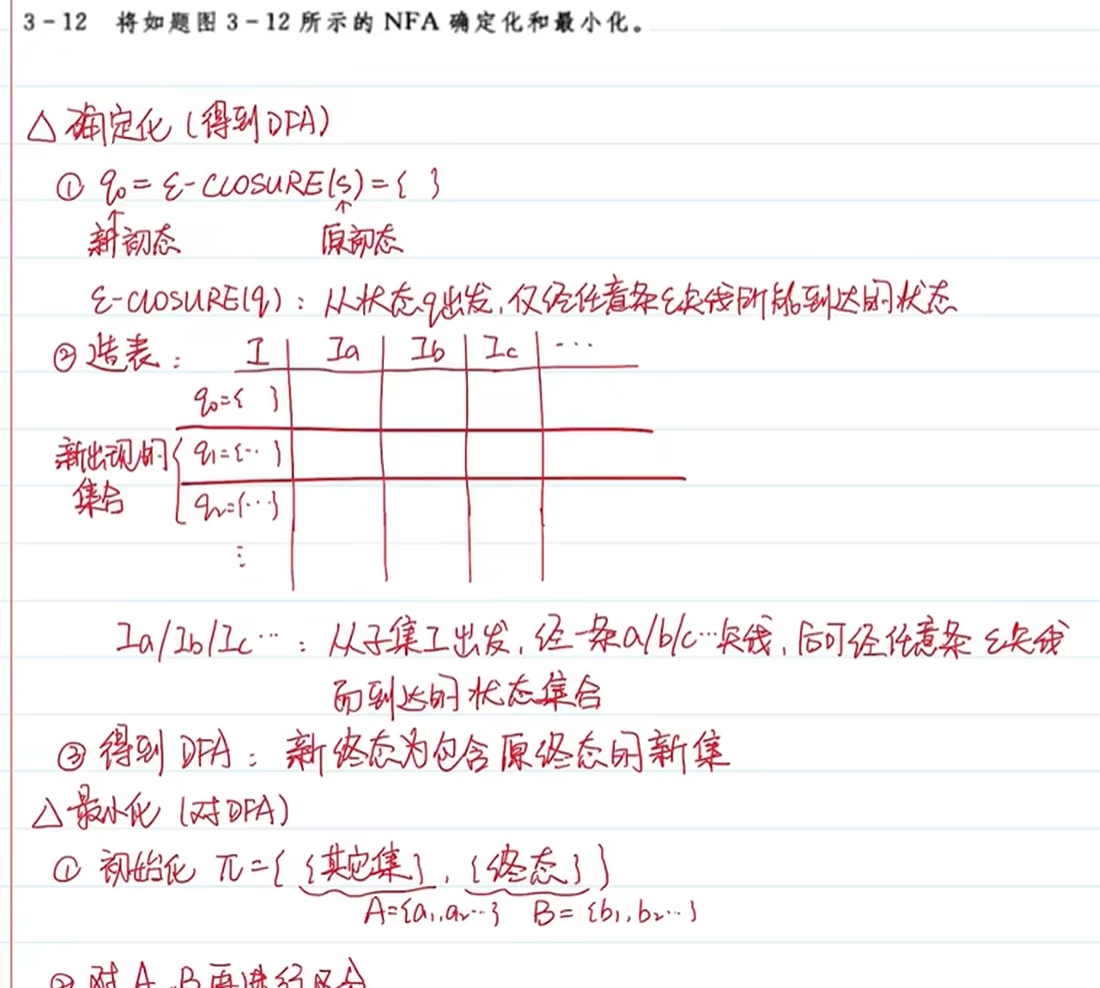 3-12 将如题图 3-12 所示的 NFA 确定化和最小化。
△ 确定化 (得到DFA)
① q₀ = ε-CLOSURE(s) = { }
↑ ↑
新初态 原初态
ε-CLOSURE(q): 从状态q出发, 仅经任意条ε矢线所能到达的状态
② 造表: I Ia Ib Ic ···
q₀={ }
新出现的 { q₁={··}
集合 q₂={···}
⋮
Ia/Ib/Ic···: 从子集I出发, 经一条a/b/c···矢线, 后可经任意条 ε矢线
而到达的状态集合
③ 得到 DFA: 新终态为包含原终态的新集
△ 最小化 (对DFA)
① 初始化 π={ {其它集}, {终态} }
A={a₁,a₂···} B={b₁,b₂···}
② 对 A、B再进行区分